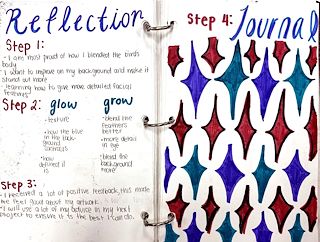 Reflection
Step 1:
- I am most proud of how I blended the birds
body
- I want to improve on my background and make it
stand out more
- learning how to give more detailed facial
features
Step 2: glow grow
- texture
- how the blue
in the back-
ground
- how
defined it
is
- blend the
feathers
better
- more detail
in eye
- blend the
background
more
Step 3:
- I received a lot of positive feedback, this made
me feel good about my artwork.
- I will use a lot of my advice in my next
project to ensure it is the best I can do.
Step 4: Journal